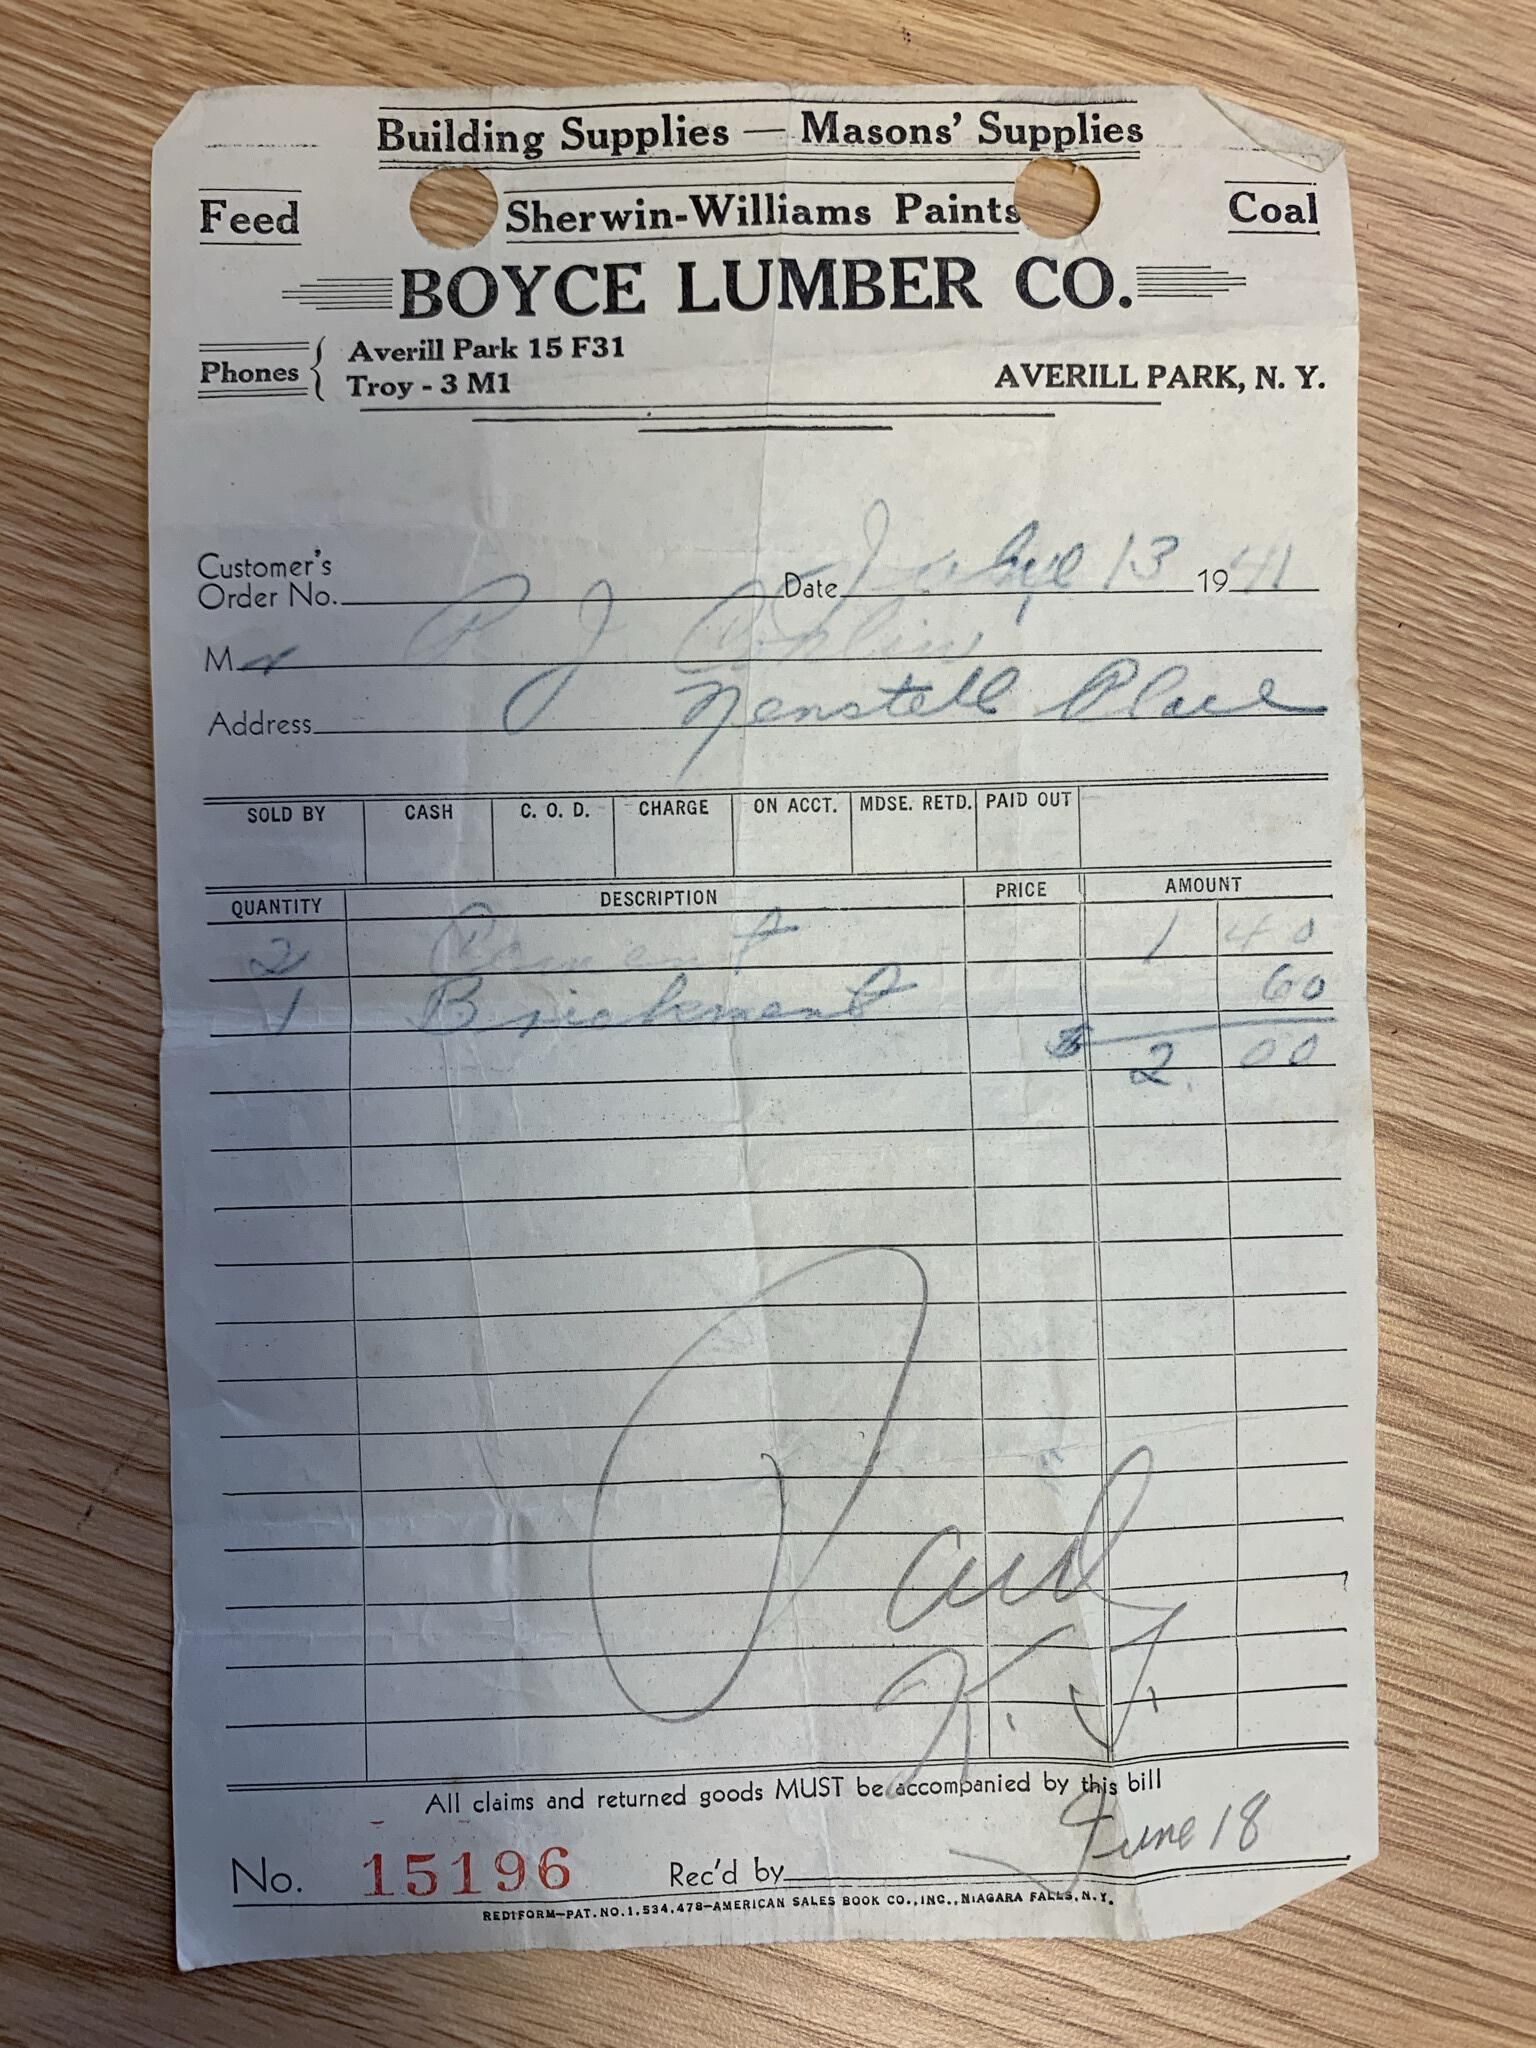 Building Supplies — Masons' Supplies
Feed Sherwin-Williams Paints Coal
BOYCE LUMBER CO.
Phones { Averill Park 15 F31
Troy - 3 M1
AVERILL PARK, N. Y.
Customer's
Order No. Date 13 19 41
Mr P J Conlin
Address Place
SOLD BY CASH C. O. D. CHARGE ON ACCT. MDSE. RETD. PAID OUT
QUANTITY DESCRIPTION PRICE AMOUNT
2 Cement 1 40
1 Brickment 60
$ 2.00
Paid
K. J.
All claims and returned goods MUST be accompanied by this bill
June 18
No. 15196 Rec'd by
REDIFORM—PAT. NO. 1,534,478—AMERICAN SALES BOOK CO., INC., NIAGARA FALLS, N. Y.